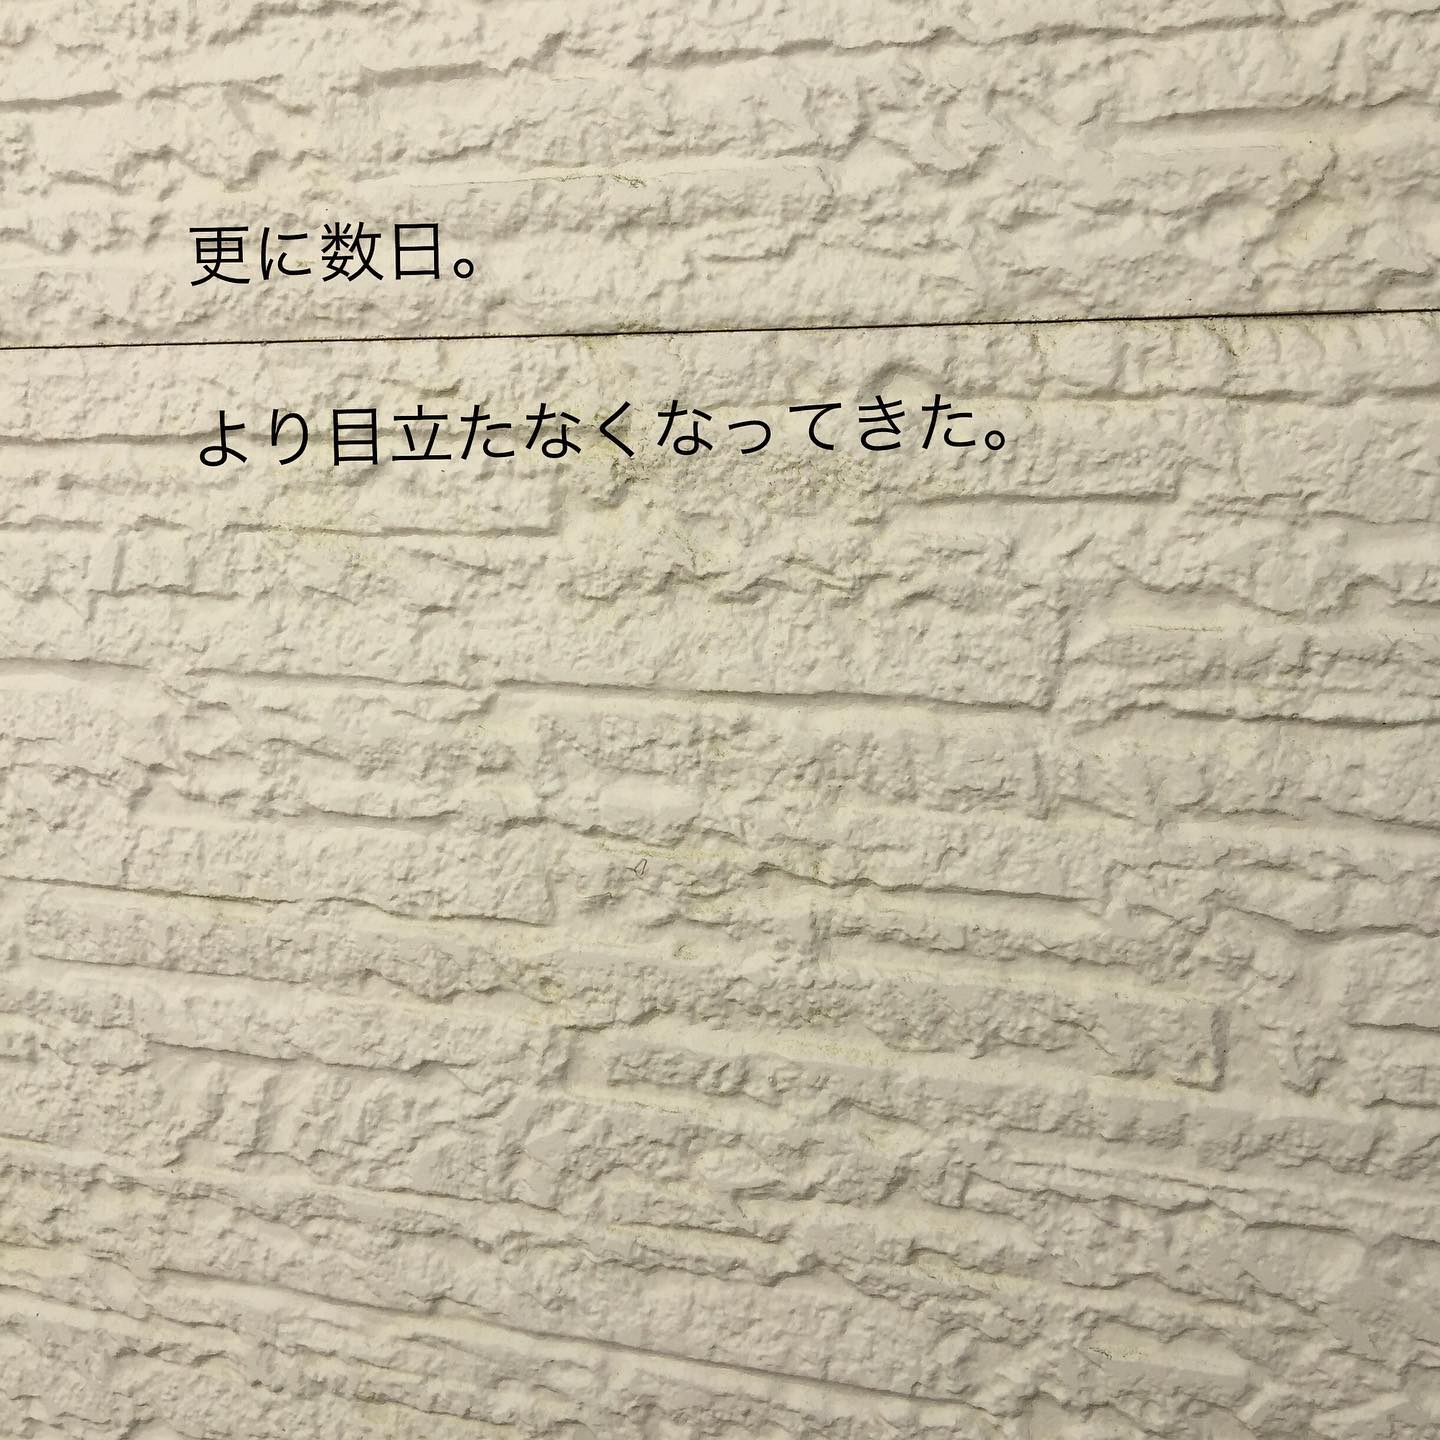 更に数日。
より目立たなくなってきた。